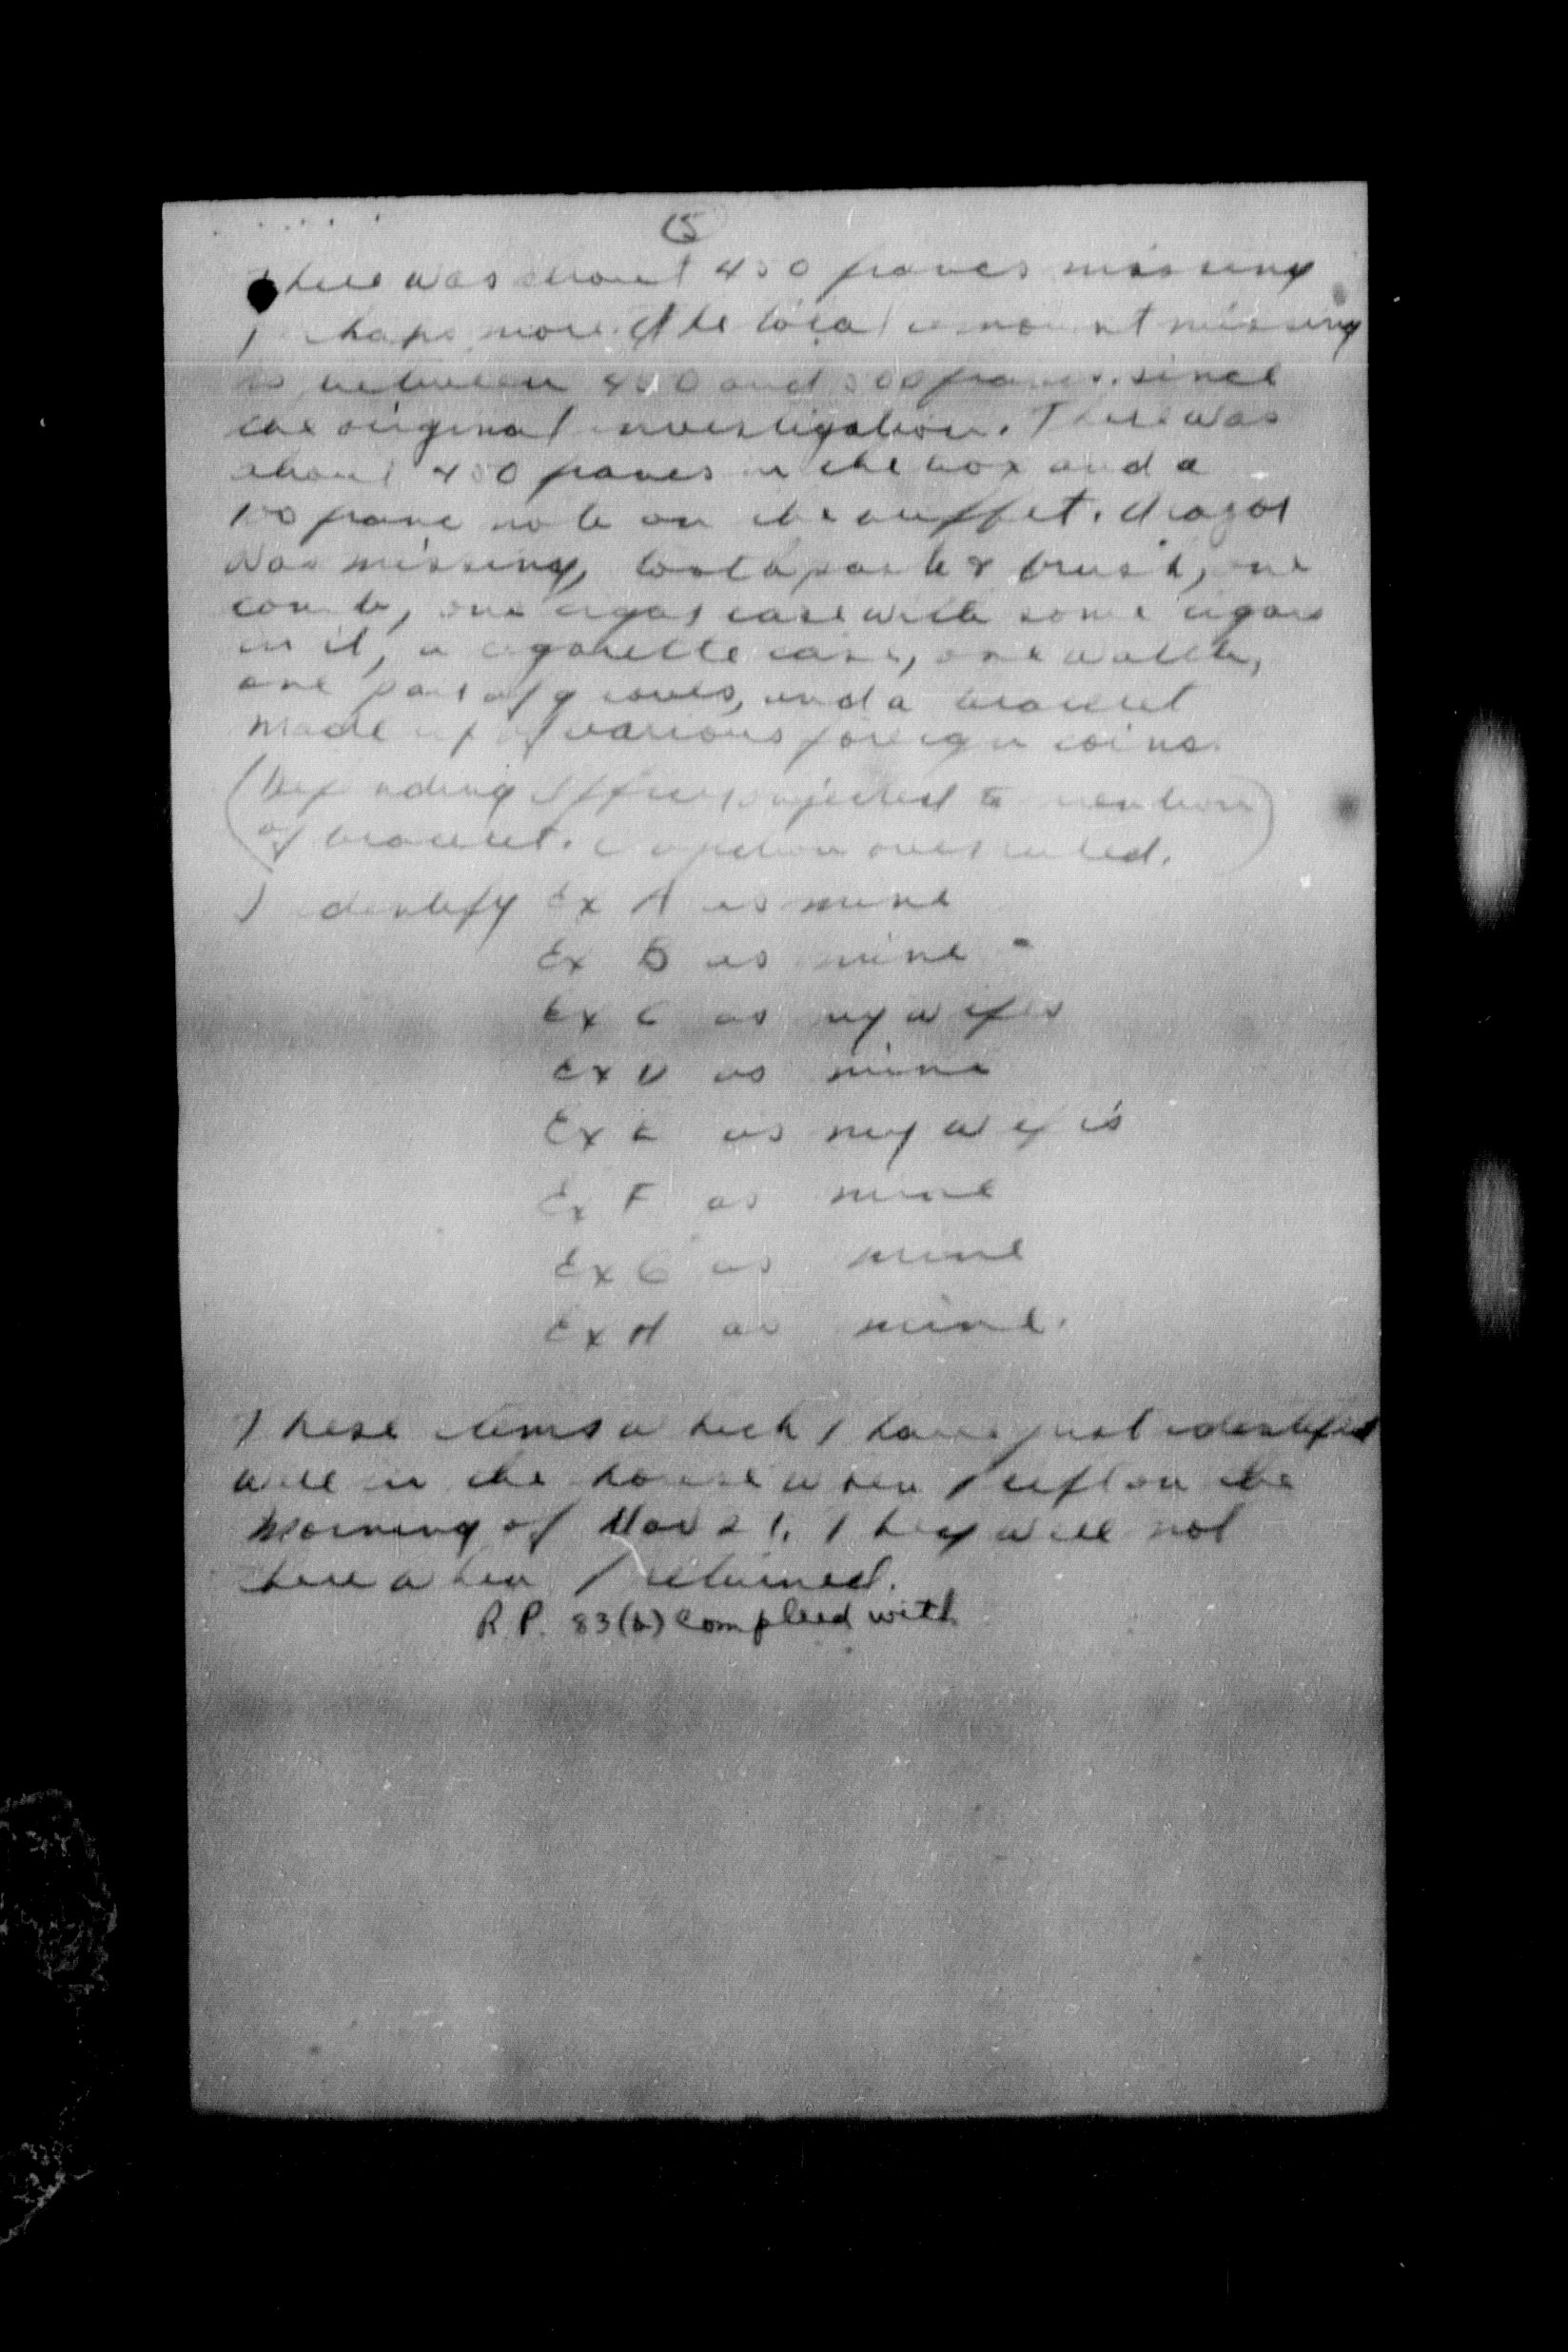 15
There was about 450 francs missing
perhaps more. The total amount missing
is between 400 and 500 francs. since
the original investigation. There was
about 400 francs in the box and a
100 franc note on the buffet. A razor
was missing, tooth paste & brush, one
comb, one cigar case with some cigars
in it, a cigarette case, one
one pair of gloves, and a bracelet
made up of various foreign coins.
(Defending Officer objected to mention
of bracelet. Objection overruled.)
I identify Ex A as mine
Ex B as mine
Ex C as my wife's
Ex D as mine
Ex E as my wife's
Ex F as mine
Ex G as mine
Ex H as mine.
These items which I have just identified
were in the house when I left on the
morning of Nov 21. They were not
there when I returned.
R.P. 83(b) complied with